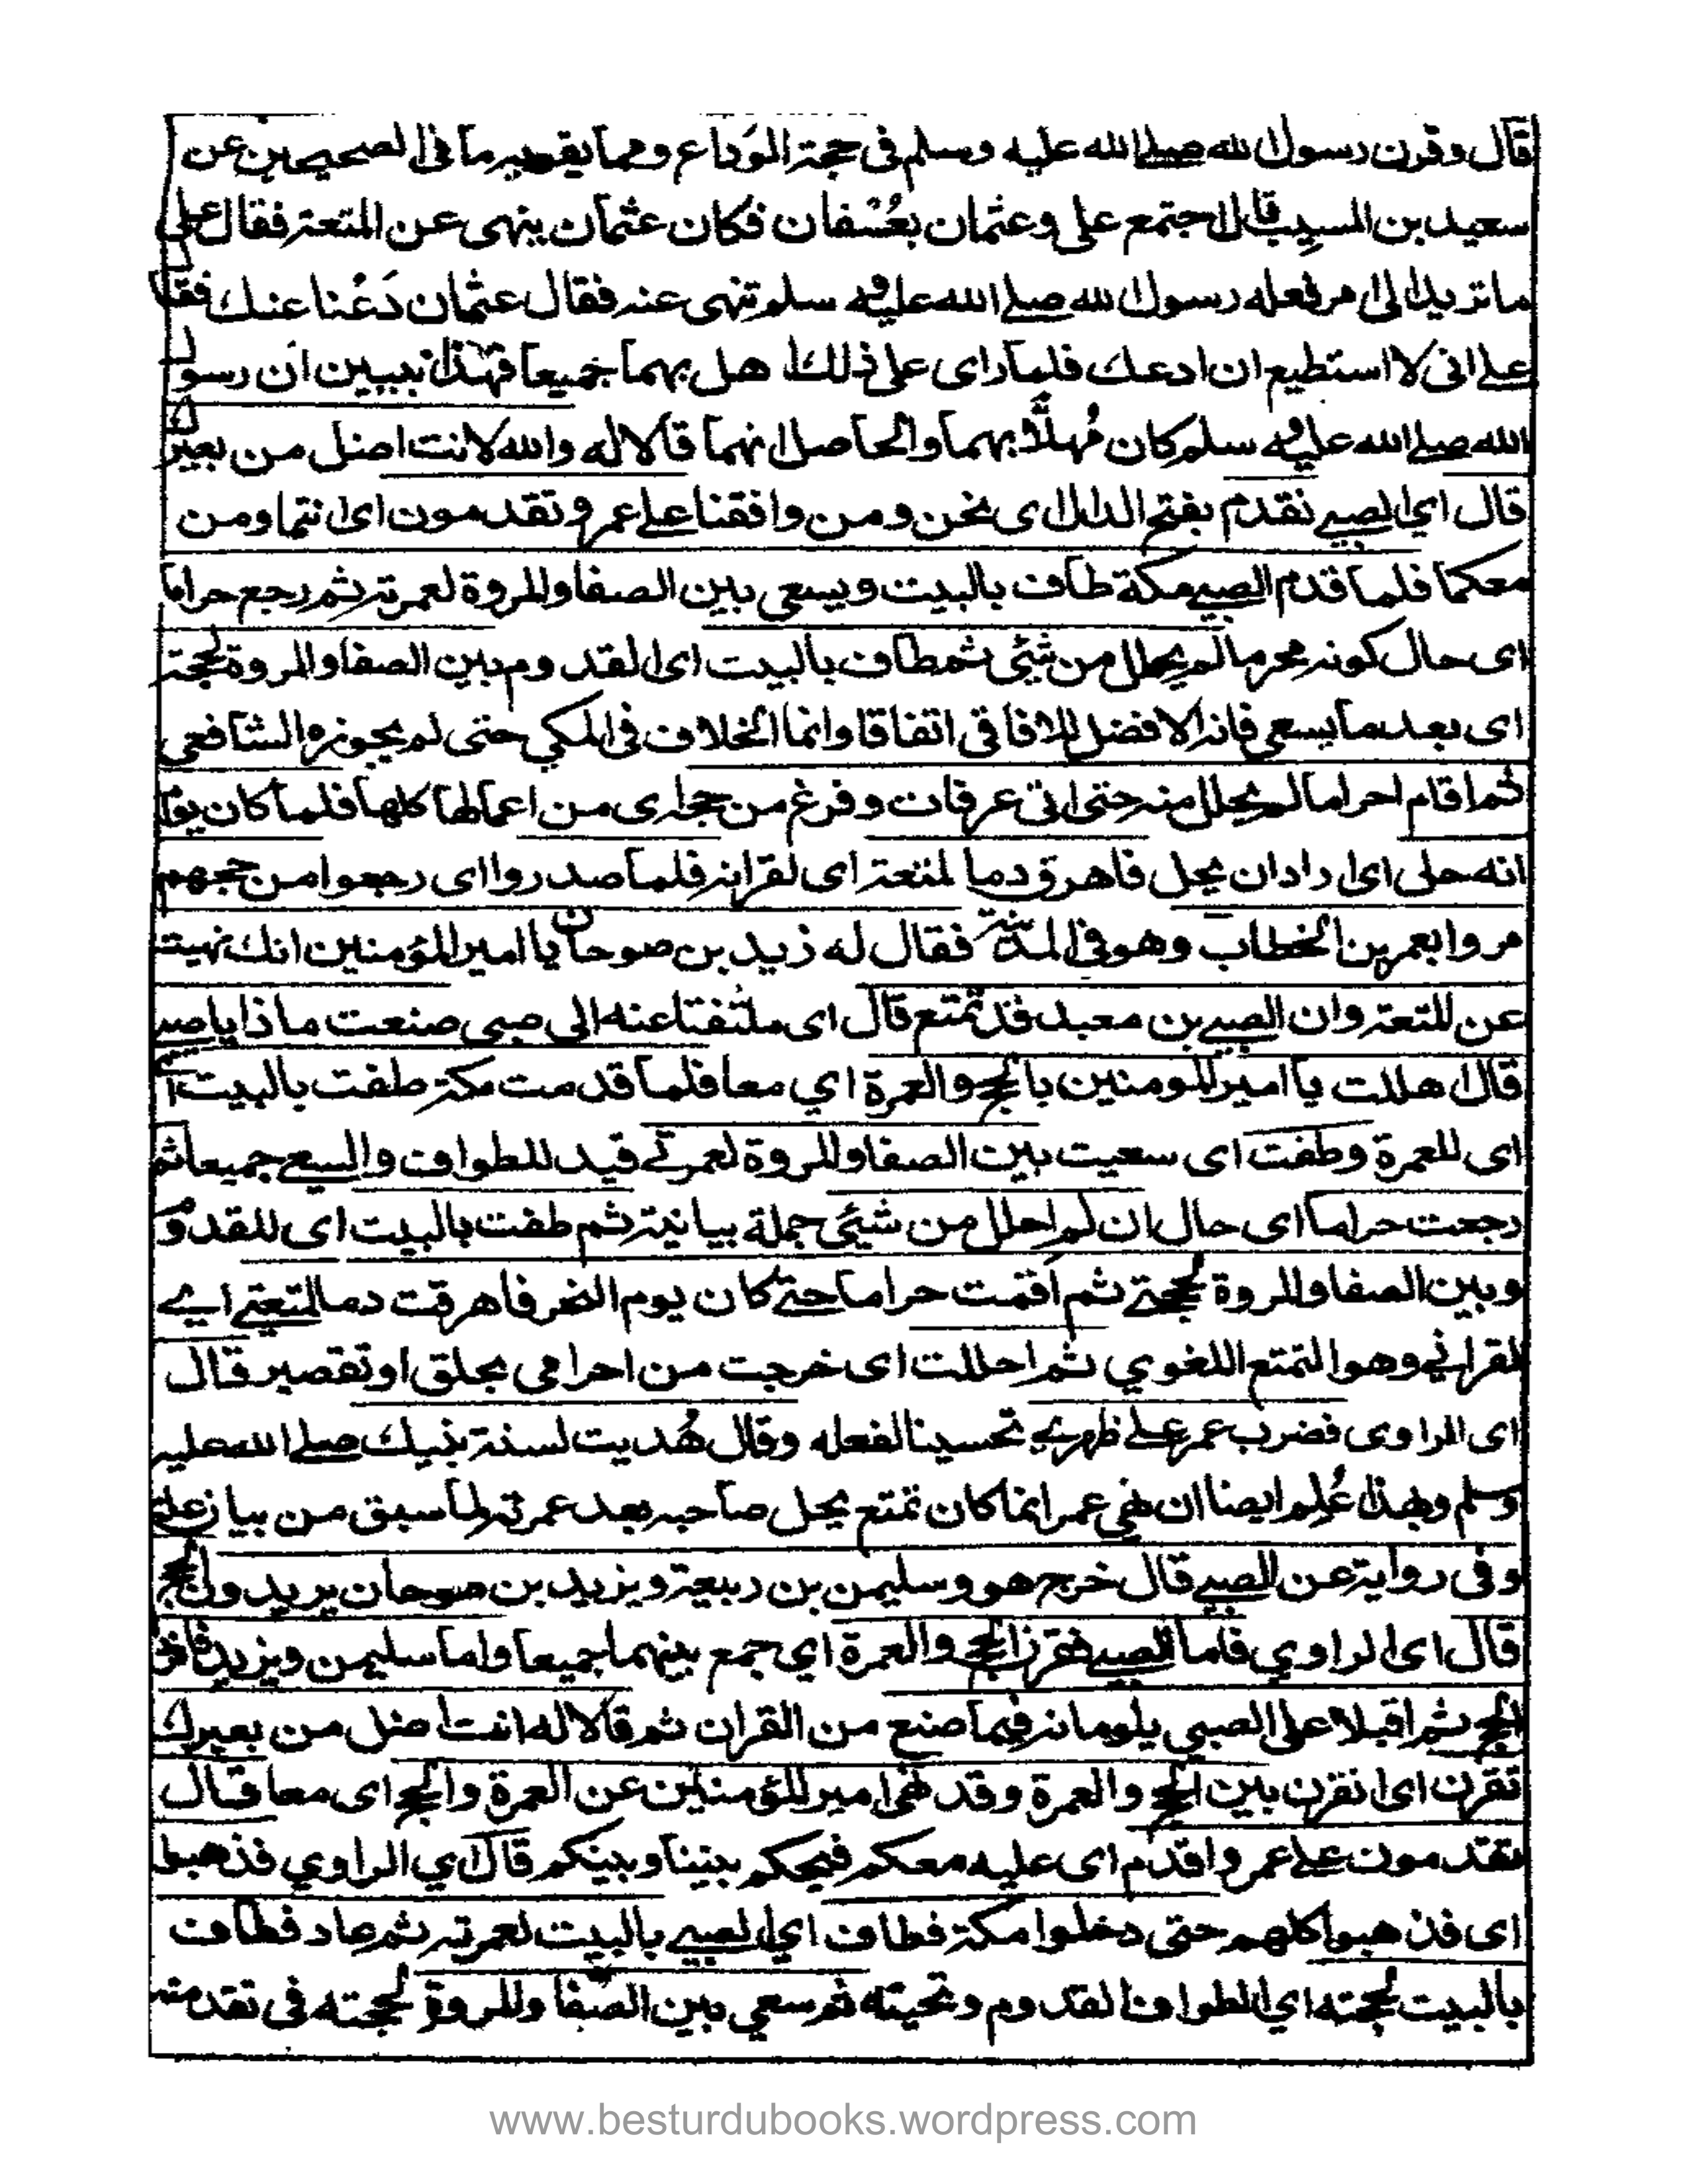 قال وقرن رسول الله صلى الله عليه وسلم في حجة الوداع ومما يقويه ما في الصحيحين عن
سعيد بن المسيب قال اجتمع علي وعثمان بعُسْفان فكان عثمان ينهى عن المتعة فقال علي
ما تريد الى امر فعله رسول الله صلے الله عليه وسلم تنهى عنه فقال عثمان دَعْنا عنك فقال
علے انى لا استطيع ان ادعك فلما راى على ذلك اهل بهما جميعا فهذا تبيين ان رسول
الله صلے الله عليه وسلم كان مُهلًّا بهما والحاصل انهما قالا له والله لانت اضل من بعيرك
قال اي الصبے نقدم بفتح الدال اى نحن ومن وافقنا علے عمر وتقدمون اى انتما ومن
معكما فلما قدم الصبے مكة طاف بالبيت ويسعى بين الصفا والمروة لعمرته ثم رجع حراما
اى حال كونه محرما لم يحلل من شئي ثم طاف بالبيت اى القدوم بين الصفا والمروة لحجته
اى بعد ما يسعى فانه الافضل للافاقى اتفاقا وانما الخلاف فى المكي حتى لم يجوزه الشافعي
ثم اقام احراما لم يحلل منه حتى اتى عرفات وفرغ من حجه اى من اعمالها كلها فلما كان يوم
انه حلى اى اراد ان يحل فاهرق دما لمتعته اى لقرانه فلما صدروا اى رجعوا من حجهم
مروا بعمر بن الخطاب وهو فى المدينة فقال له زيد بن صوحان يا امير المؤمنين انك نهيت
عن المتعة وان الصبے بن معبد قد تمتع قال اى ملتفتا عنه الى صبى صنعت ماذا يا صبے
قال اهللت يا امير المومنين بالحج والعمرة اي معا فلما قدمت مكة طفت بالبيت
اى للعمرة وطفت اى سعيت بين الصفا والمروة لعمرتے قيد للطواف والسعے جميعا ثم
رجعت حراما اى حال ان لم احلل من شيئ جملة بيانية ثم طفت بالبيت اى للقدوم
وبين الصفا والمروة لحجتے ثم اقمت حراما حتے كان يوم النحر فاهرقت دما لمتعتے اے
لقرانے وهوا لتمتع اللغوي ثم احللت اى خرجت من احرامى بحلق او تقصير قال
اى الراوى فضرب عمر علے ظهره تحسينا لفعله وقال هُديت لسنة نبيك صلے الله عليه
وسلم وبهذا عُلم ايضا ان نهي عمر انما كان تمتع يحل صاحبه بعد عمرته لما سبق من بيان
وفى رواية عن الصبے قال خرج هو وسليمن بن ربيعة ويزيد بن صوحان يريدون الحج
قال اى الراوي فاما الصبے فقرن الحج والعمرة اي جمع بينهما جميعا واما سليمن ويزيد فافردا
الحج ثم اقبلا على الصبي يلومانه فيما صنع من القران ثم قالا له انت اضل من بعيرك
تقرن اى انقرن بين الحج والعمرة وقد نهى امير المؤمنين عن العمرة والحج اى معا قال
تقدمون علے عمر واقدم اى عليه معكم فيحكم بيننا وبينكم قال اي الراوي فذهبوا
اى فذهبوا كلهم حتى دخلوا مكة فطاف اي الصبے بالبيت لعمرته ثم عاد فطاف
بالبيت لحجته اي الطواف القدوم وتحيته ثم سعي بين الصفا والمروة لحجته فى تقدمته
www.besturdubooks.wordpress.com